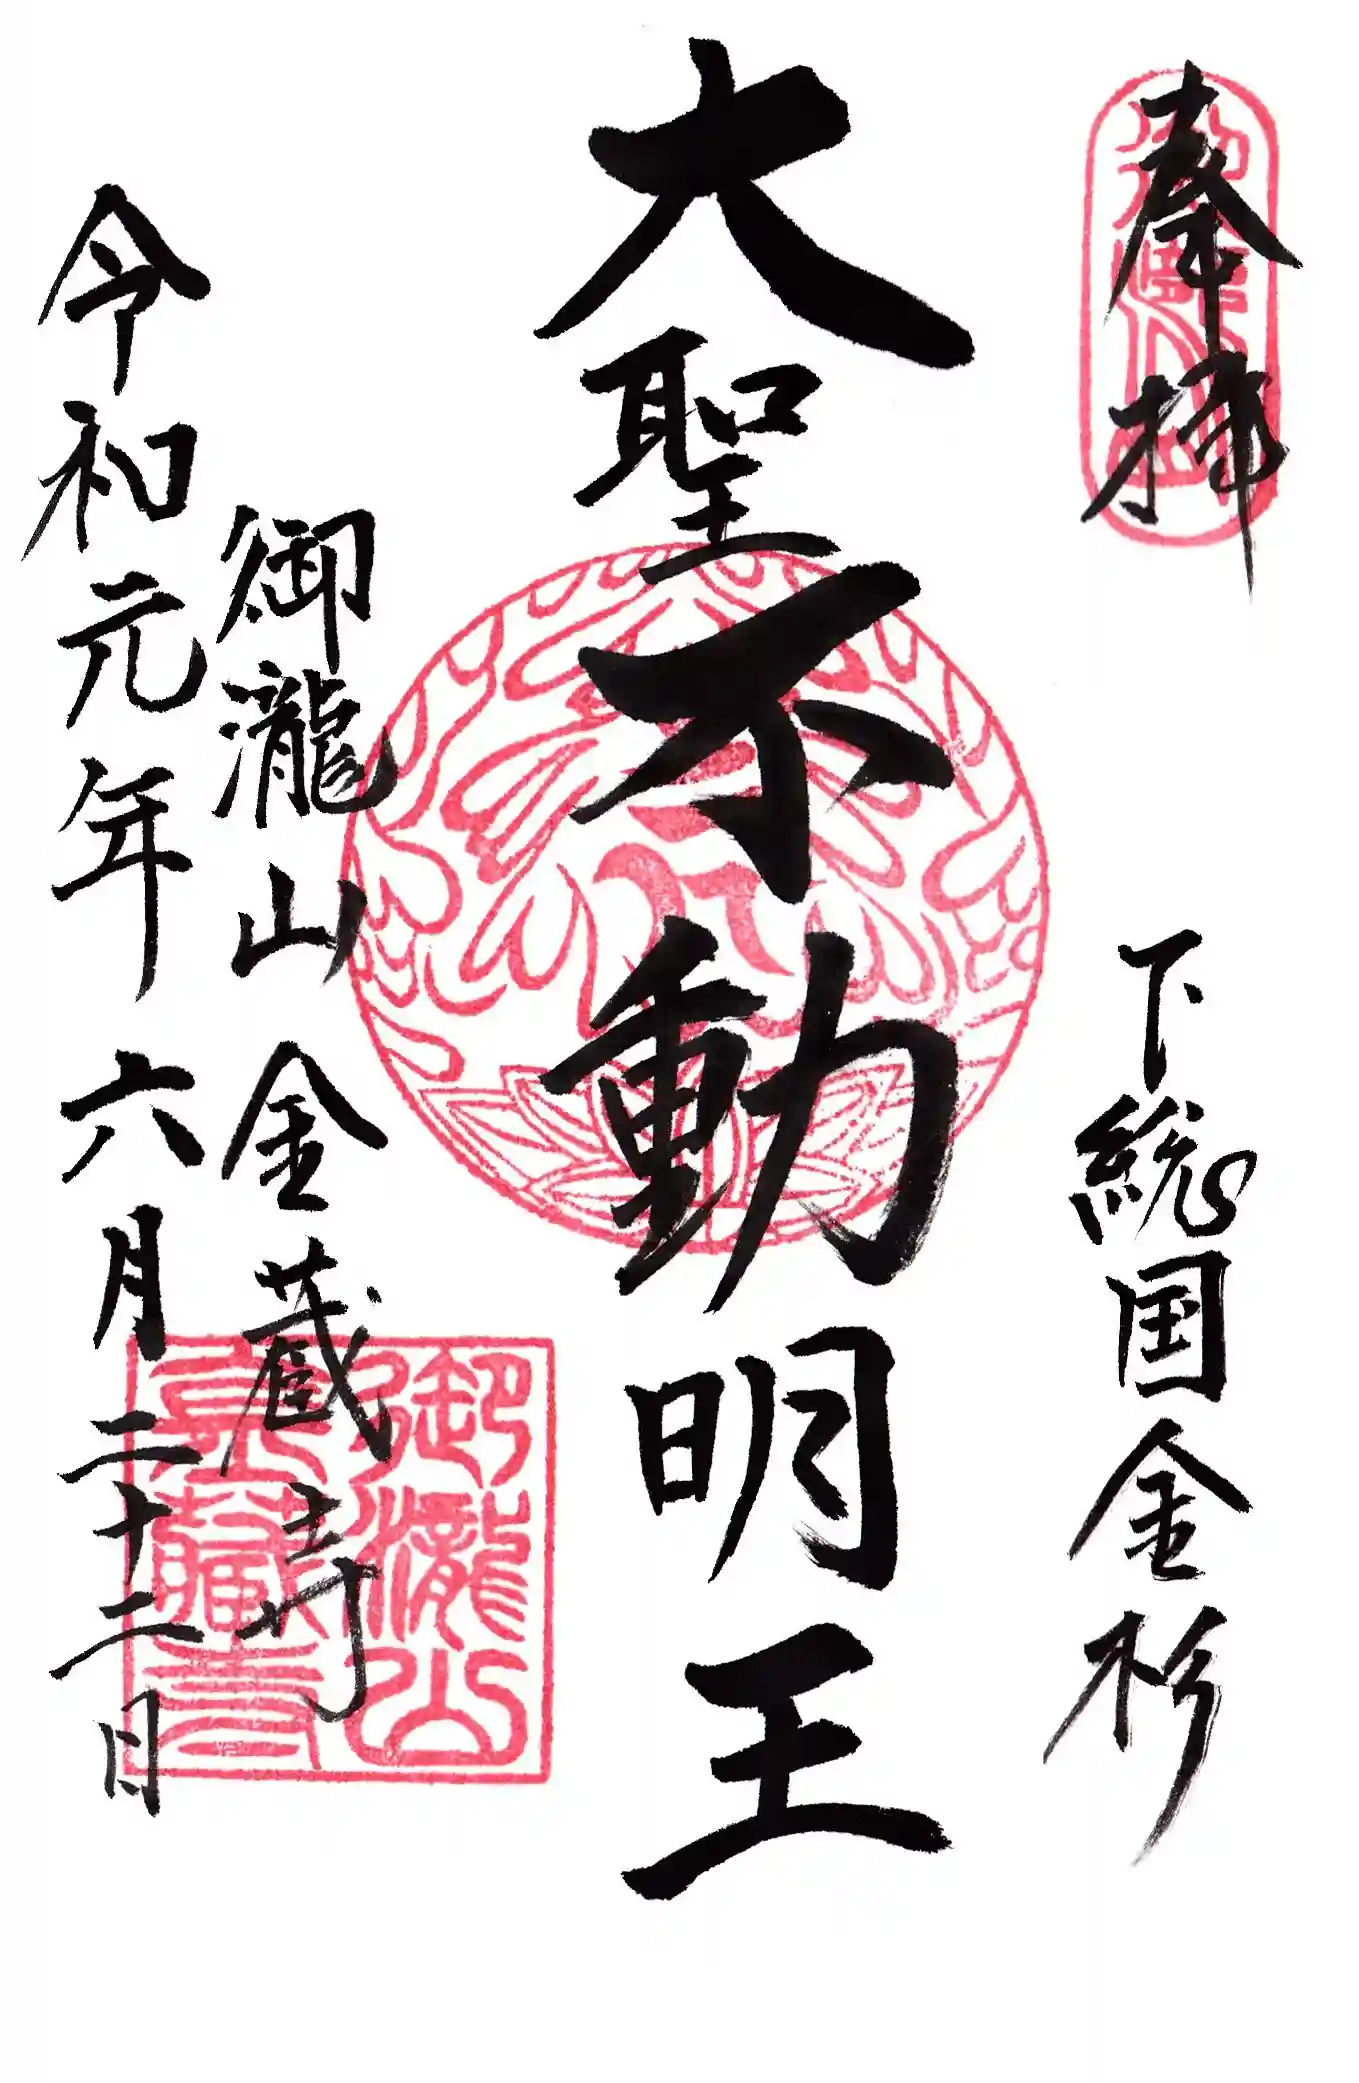 奉拝
下総国金杉
大聖不動明王
御瀧山金蔵寺
令和元年六月二十二日
御瀧山
金藏寺